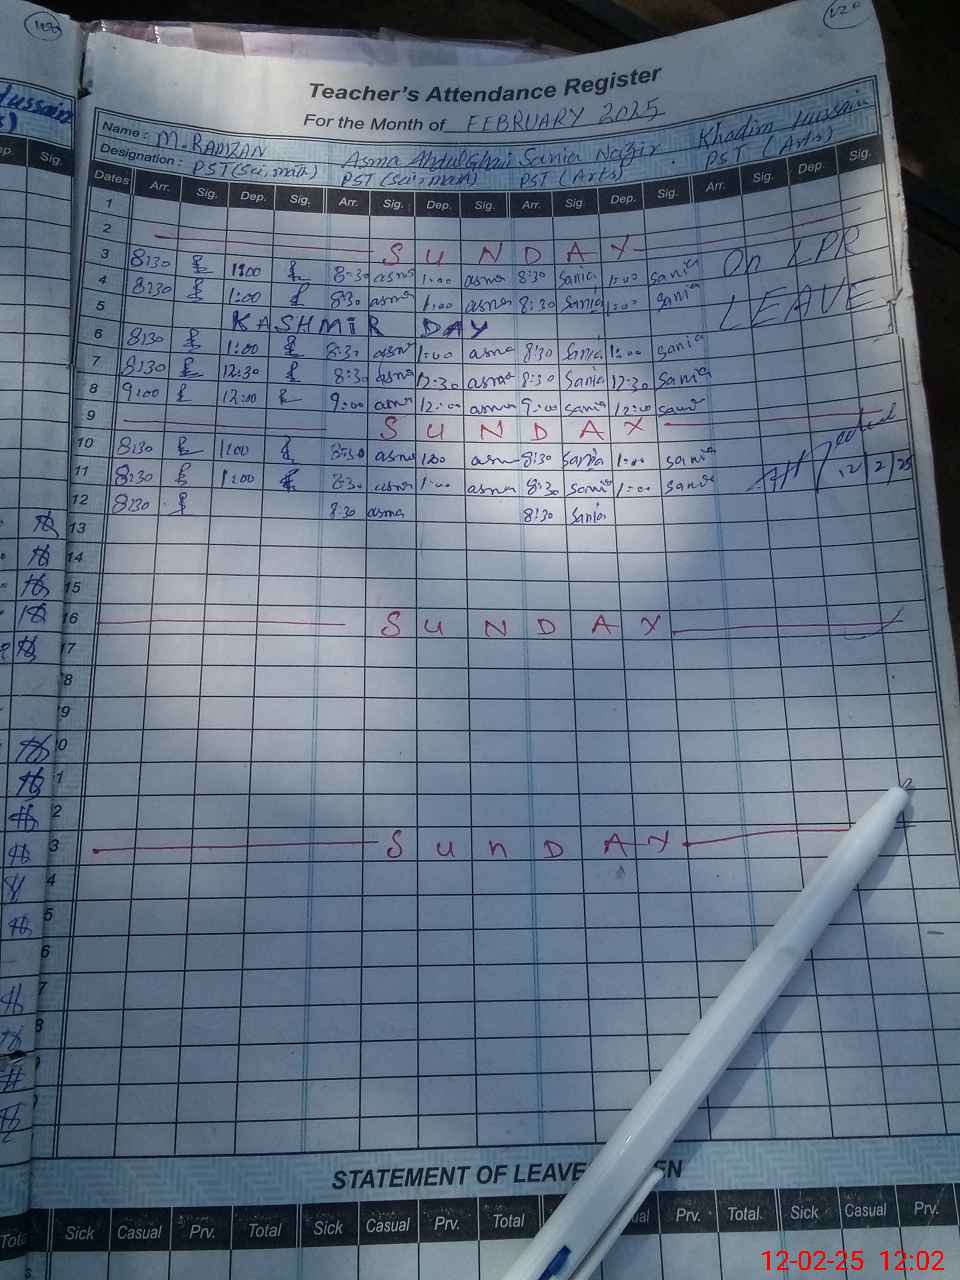 120
Teacher's Attendance Register
For the Month of FEBRUARY 2025
Name: M. RAMZAN Asma Abdul Ghani Sania Nazir Khadim Hussain
Designation: PST (Sci, math) PST (Sci, math) PST (Arts) PST (Arts)
Dates Arr. Sig. Dep. Sig. Arr. Sig. Dep. Sig. Arr. Sig. Dep. Sig. Arr. Sig. Dep. Sig.
1
2 SUNDAY
3 8:30 1:00 8:30 asma 1:00 asma 8:30 Sania 1:00 Sania On LPR
4 8:30 1:00 8:30 asma 1:00 asma 8:30 Sania 1:00 Sania LEAVE
5 KASHMIR DAY
6 8:30 1:00 8:30 asma 1:00 asma 8:30 Sania 1:00 Sania
7 8:30 12:30 8:30 asma 12:30 asma 8:30 Sania 12:30 Sania
8 9:00 12:00 9:00 asma 12:00 asma 9:00 Sania 12:00 Sania
9 SUNDAY
10 8:30 1:00 8:30 asma 1:00 asma 8:30 Sania 1:00 Sania
11 8:30 1:00 8:30 asma 1:00 asma 8:30 Sania 1:00 Sania 12/2/25
12 8:30 8:30 asma 8:30 Sania
13
14
15
16 SUNDAY
17
8
9
0
1
2
3 SUNDAY
4
5
6
7
8
STATEMENT OF LEAVE EN
Sick Casual Prv. Total Sick Casual Prv. Total Prv. Total. Sick Casual Prv.
12-02-25 12:02